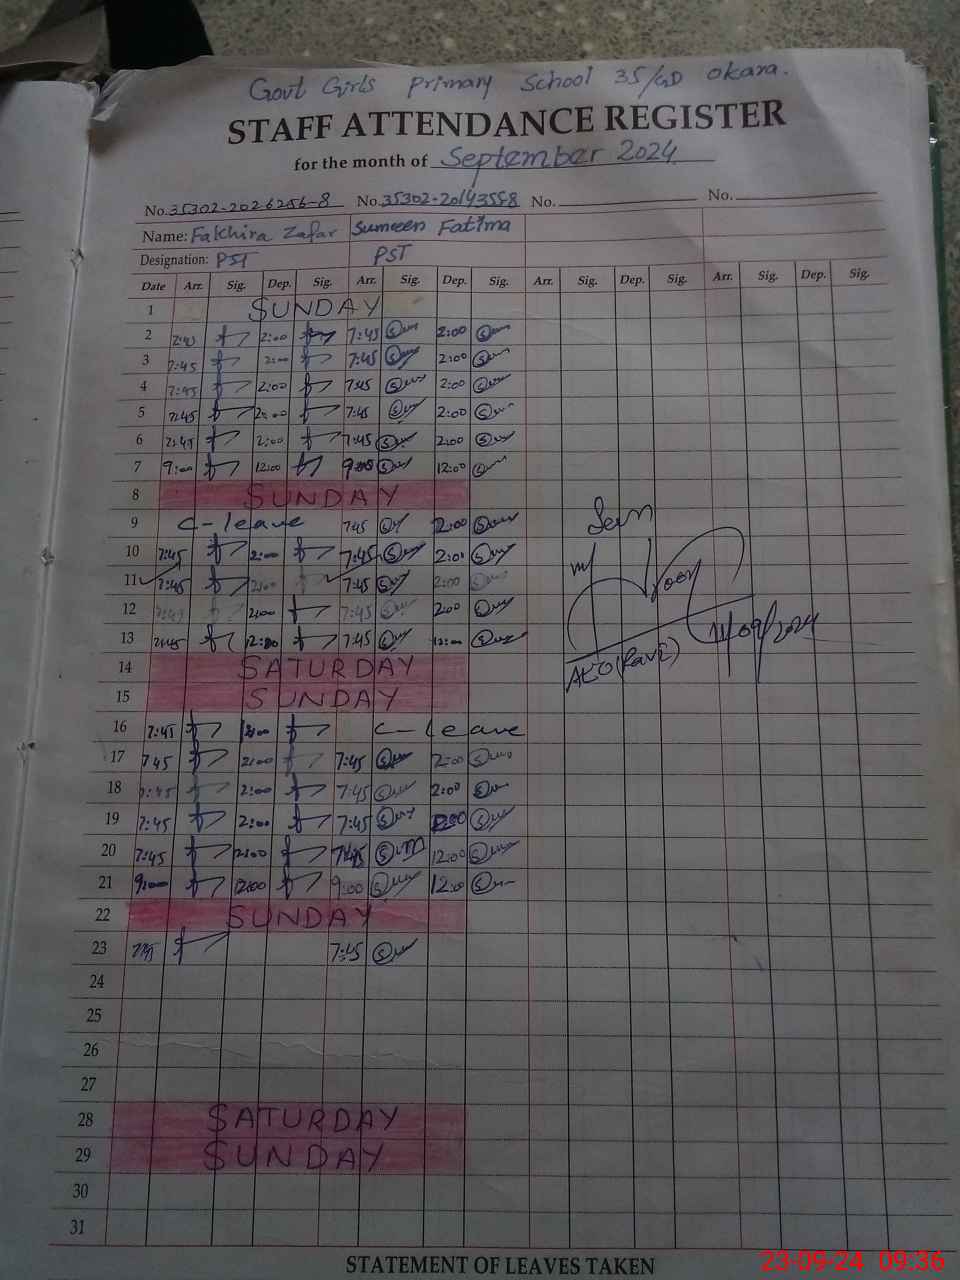 Govt Girls Primary School 35/GD Okara.
STAFF ATTENDANCE REGISTER
for the month of September 2024
No. 35302-2026256-8 No. 35302-2014355-8 No. No.
Name: Fakhira Zafar Sumeen Fatima
Designation: PST PST
Date Arr. Sig. Dep. Sig. Arr. Sig. Dep. Sig. Arr. Sig. Dep. Sig. Arr. Sig. Dep. Sig.
1 SUNDAY
2 7:45 2:00 7:45 2:00
3 7:45 2:00 7:45 2:00
4 7:45 2:00 7:45 2:00
5 7:45 2:00 7:45 2:00
6 7:45 2:00 7:45 2:00
7 9:00 12:00 9:00 12:00
8 SUNDAY
9 C-leave 7:45 2:00
10 7:45 2:00 7:45 2:00
11 7:45 2:00 7:45 2:00
12 7:45 2:00 7:45 2:00
13 7:45 12:00 7:45 12:00
14 SATURDAY
15 SUNDAY
16 7:45 2:00 C-leave
17 7:45 2:00 7:45 2:00
18 7:45 2:00 7:45 2:00
19 7:45 2:00 7:45 2:00
20 7:45 7:45 12:00
21 9:00 12:00 9:00 12:00
22 SUNDAY
23 7:45 7:45
24
25
26
27
28 SATURDAY
29 SUNDAY
30
31
Seen
11/09/2024
STATEMENT OF LEAVES TAKEN
23-09-24 09:36